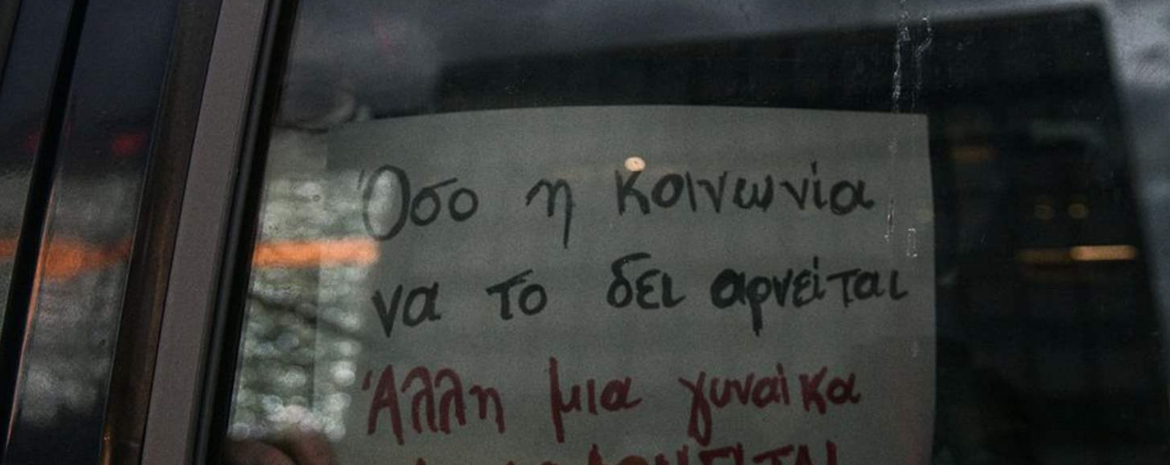 Όσο η κοινωνία
να το δει αρνείται
Άλλη μια γυναίκα